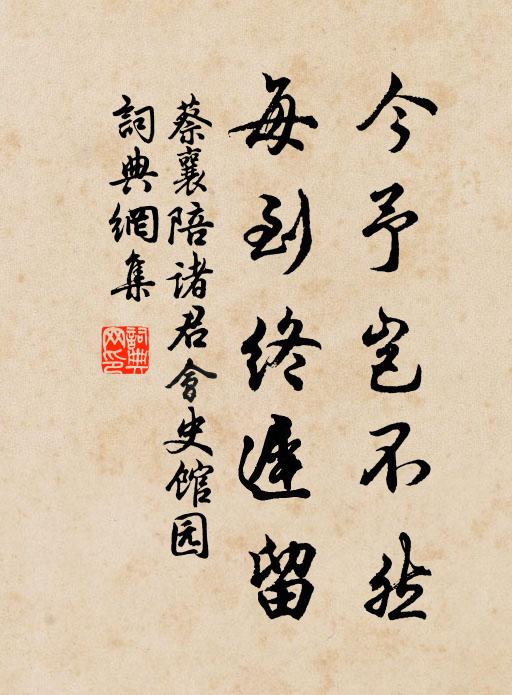 今予岂不然
每到终遲留
蔡襄陪诸君會史馆园
詞典網集
詞典网印